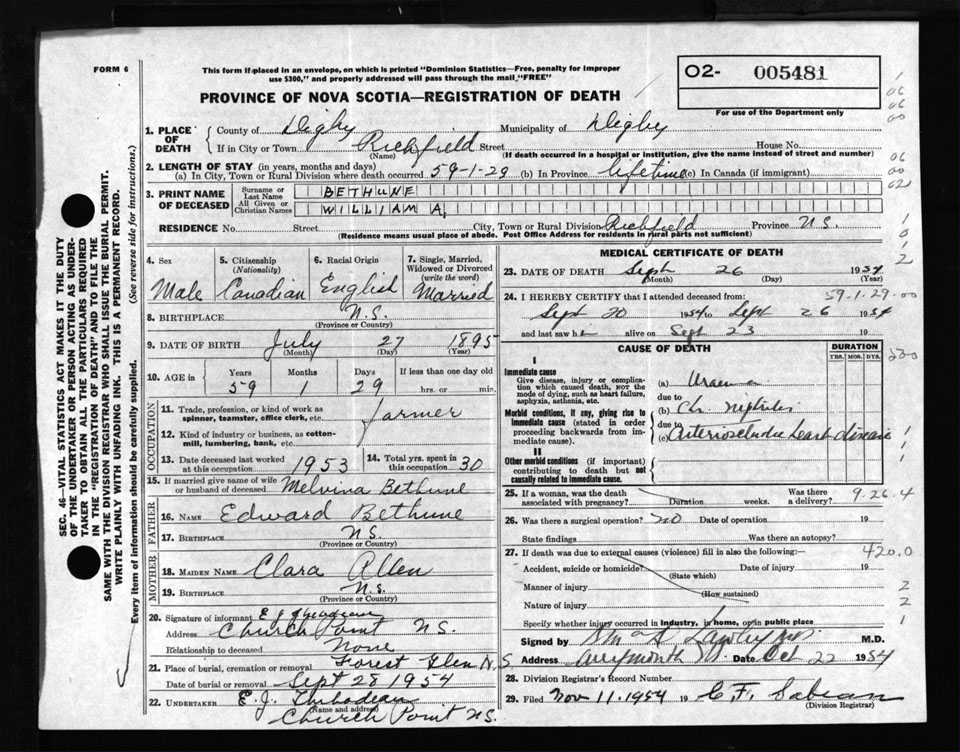 FORM 6
This form if placed in an envelope, on which is printed "Dominion Statistics—Free, penalty for improper
use $300," and properly addressed will pass through the mail "FREE"
O2- 005481
For use of the Department only
PROVINCE OF NOVA SCOTIA—REGISTRATION OF DEATH
1. PLACE OF DEATH County of Digby Municipality of Digby
If in City or Town Richfield Street House No.
(Name) (If death occurred in a hospital or institution, give the name instead of street and number)
2. LENGTH OF STAY (in years, months and days)
(a) In City, Town or Rural Division where death occurred 59-1-29 (b) In Province lifetime (c) In Canada (if immigrant)
3. PRINT NAME OF DECEASED Surname or Last Name BETHUNE
All Given or Christian Names WILLIAM A.
RESIDENCE No. Street City, Town or Rural Division Richfield Province N.S.
(Residence means usual place of abode. Post Office Address for residents in rural parts not sufficient)
4. Sex Male
5. Citizenship (Nationality) Canadian
6. Racial Origin English
7. Single, Married, Widowed or Divorced (write the word) Married
8. BIRTHPLACE N.S.
(Province or Country)
9. DATE OF BIRTH July 27 1895
(Month) (Day) (Year)
10. AGE in Years 59 Months 1 Days 29 If less than one day old hrs. or min.
OCCUPATION
11. Trade, profession, or kind of work as spinner, teamster, office clerk, etc. farmer
12. Kind of industry or business, as cotton-mill, lumbering, bank, etc.
13. Date deceased last worked at this occupation 1953
14. Total yrs. spent in this occupation 30
15. If married give name of wife or husband of deceased Melvina Bethune
FATHER
16. NAME Edward Bethune
17. BIRTHPLACE N.S.
(Province or Country)
MOTHER
18. MAIDEN NAME Clara Allen
19. BIRTHPLACE N.S.
(Province or Country)
20. Signature of informant E J Thibodeau
Address Church Point N.S.
Relationship to deceased None
21. Place of burial, cremation or removal Forest Glen N.S
Date of burial or removal Sept 28 1954
22. UNDERTAKER E. J. Thibodeau
(Name and address) Church Point N.S.
MEDICAL CERTIFICATE OF DEATH
23. DATE OF DEATH Sept 26 1954
(Month) (Day) (Year)
24. I HEREBY CERTIFY that I attended deceased from: 59-1-29-00
Sept 20 1954 to Sept 26 1954
and last saw h alive on Sept 23
CAUSE OF DEATH
DURATION
YRS. MOS. DYS.
I
Immediate cause
Give disease, injury or complication which caused death, NOT the mode of dying, such as heart failure, asphyxia, asthenia, etc.
(a) Uraemia
due to
Morbid conditions, if any, giving rise to immediate cause (stated in order proceeding backwards from immediate cause).
(b) Ch. Nephritis
due to
(c) Arteriosclerotic heart disease
II
Other morbid conditions (if important) contributing to death but not causally related to immediate cause.
25. If a woman, was the death associated with pregnancy? Duration weeks. Was there a delivery? 9.26.4
26. Was there a surgical operation? no Date of operation 19
State findings Was there an autopsy?
27. If death was due to external causes (violence) fill in also the following:— 420.0
Accident, suicide or homicide? Date of injury 19
(State which)
Manner of injury
(How sustained)
Nature of injury
Specify whether injury occurred in industry, in home, or in public place
Signed by M.D.
Address Date Oct 22 1954
28. Division Registrar's Record Number
29. Filed Nov 11. 1954 19 C. F. Sabean
(Division Registrar)
SEC. 46—VITAL STATISTICS ACT MAKES IT THE DUTY
OF THE UNDERTAKER OR PERSON ACTING AS UNDER-
TAKER TO OBTAIN ALL THE PARTICULARS REQUIRED
IN THE "REGISTRATION OF DEATH" AND TO FILE THE
SAME WITH THE DIVISION REGISTRAR WHO SHALL ISSUE THE BURIAL PERMIT.
WRITE PLAINLY WITH UNFADING INK. THIS IS A PERMANENT RECORD.
Every item of information should be carefully supplied. (See reverse side for instructions.)